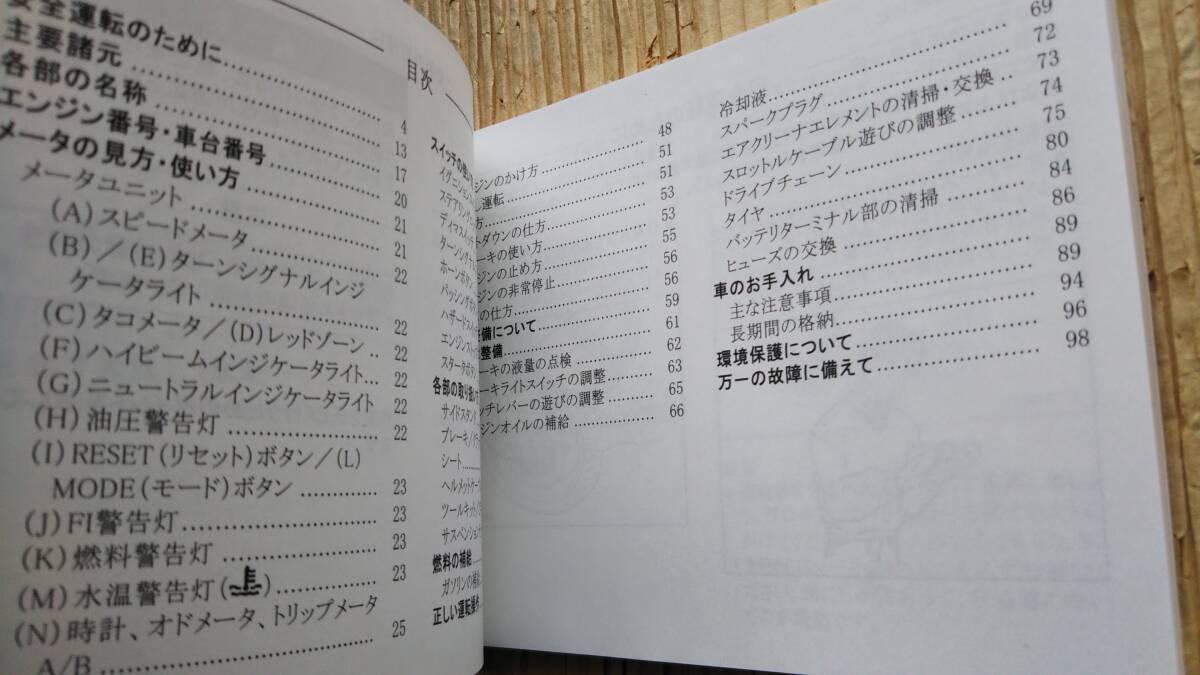 安全運転のために
主要諸元
各部の名称 4
エンジン番号・車台番号 13
メータの見方・使い方 17
メータユニット 20
(A)スピードメータ 21
(B)／(E)ターンシグナルインジ 21
ケータライト 22
(C)タコメータ／(D)レッドゾーン 22
(F)ハイビームインジケータライト 22
(G)ニュートラルインジケータライト 22
(H)油圧警告灯 22
(I)RESET(リセット)ボタン／(L) 22
MODE(モード)ボタン 23
(J)FI警告灯 23
(K)燃料警告灯 23
(M)水温警告灯( ) 23
(N)時計、オドメータ、トリップメータ
A/B 25
目次
スイッチの使い
イグニション
ステアリング
ディマスイッチ
ターンシグナ
ホーンボタン
パッシングボタ
ハザードスイ
エンジンスト
スタータボタ
各部の取り扱い
サイドスタン
ブレーキ／
シート
ヘルメットケー
ツールキット／
サスペンション
燃料の補給
ガソリンの補給
正しい運転操作
ジンのかけ方 48
し運転 51
方 51
トダウンの仕方 53
ーキの使い方 53
ジンの止め方 55
ジンの非常停止 56
の仕方 56
備について 59
整備 61
ーキの液量の点検 62
ーキライトスイッチの調整 63
ッチレバーの遊びの調整 65
ジンオイルの補給 66
冷却液 69
スパークプラグ 72
エアクリーナエレメントの清掃・交換 73
スロットルケーブル遊びの調整 74
ドライブチェーン 75
タイヤ 80
バッテリターミナル部の清掃 84
ヒューズの交換 86
車のお手入れ 89
主な注意事項 89
長期間の格納 94
環境保護について 96
万一の故障に備えて 98